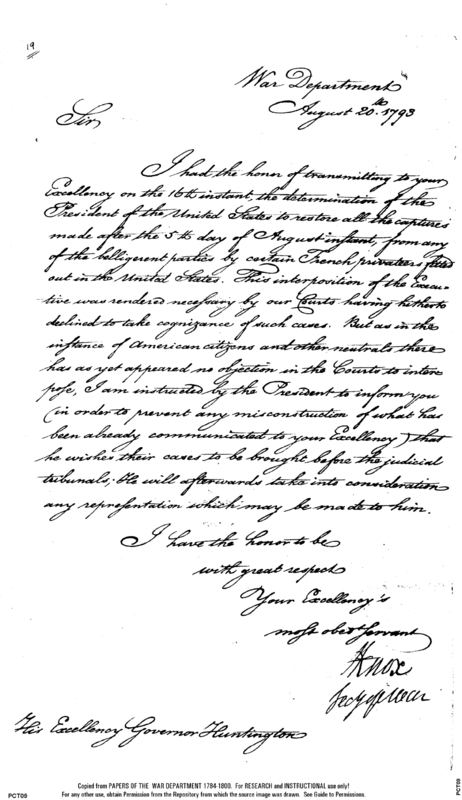 19
War Department
August 20th 1793
Sir,
I had the honor of transmitting to your
Excellency on the 16th instant, the determination of the
President of the United States to restore all the captures
made after the 5th day of August instant, from any
of the belligerent parties by certain French privateers fitted
out in the United States. This interposition of the Execu-
tive was rendered necessary by our Courts having hitherto
declined to take cognizance of such cases. But as in the
instance of American citizens and other neutrals there
has as yet appeared no objection in the Courts to inter
pose, I am instructed by the President to inform you
(in order to prevent any misconstruction of what has
been already communicated to your Excellency) that
he wishes their cases to be brought before the judicial
tribunals; He will afterwards take into consideration
any representation which may be made to him.
I have the honor to be
with great respect
Your Excellency's
most obedt servant
HKnox
Secy of War
His Excellency Governor Huntington
Copied from PAPERS OF THE WAR DEPARTMENT 1784-1800. For RESEARCH and INSTRUCTIONAL use only!
PCT09 For any other use, obtain Permission from the Repository from which the source image was drawn. See Guide to Permissions.
PCT09